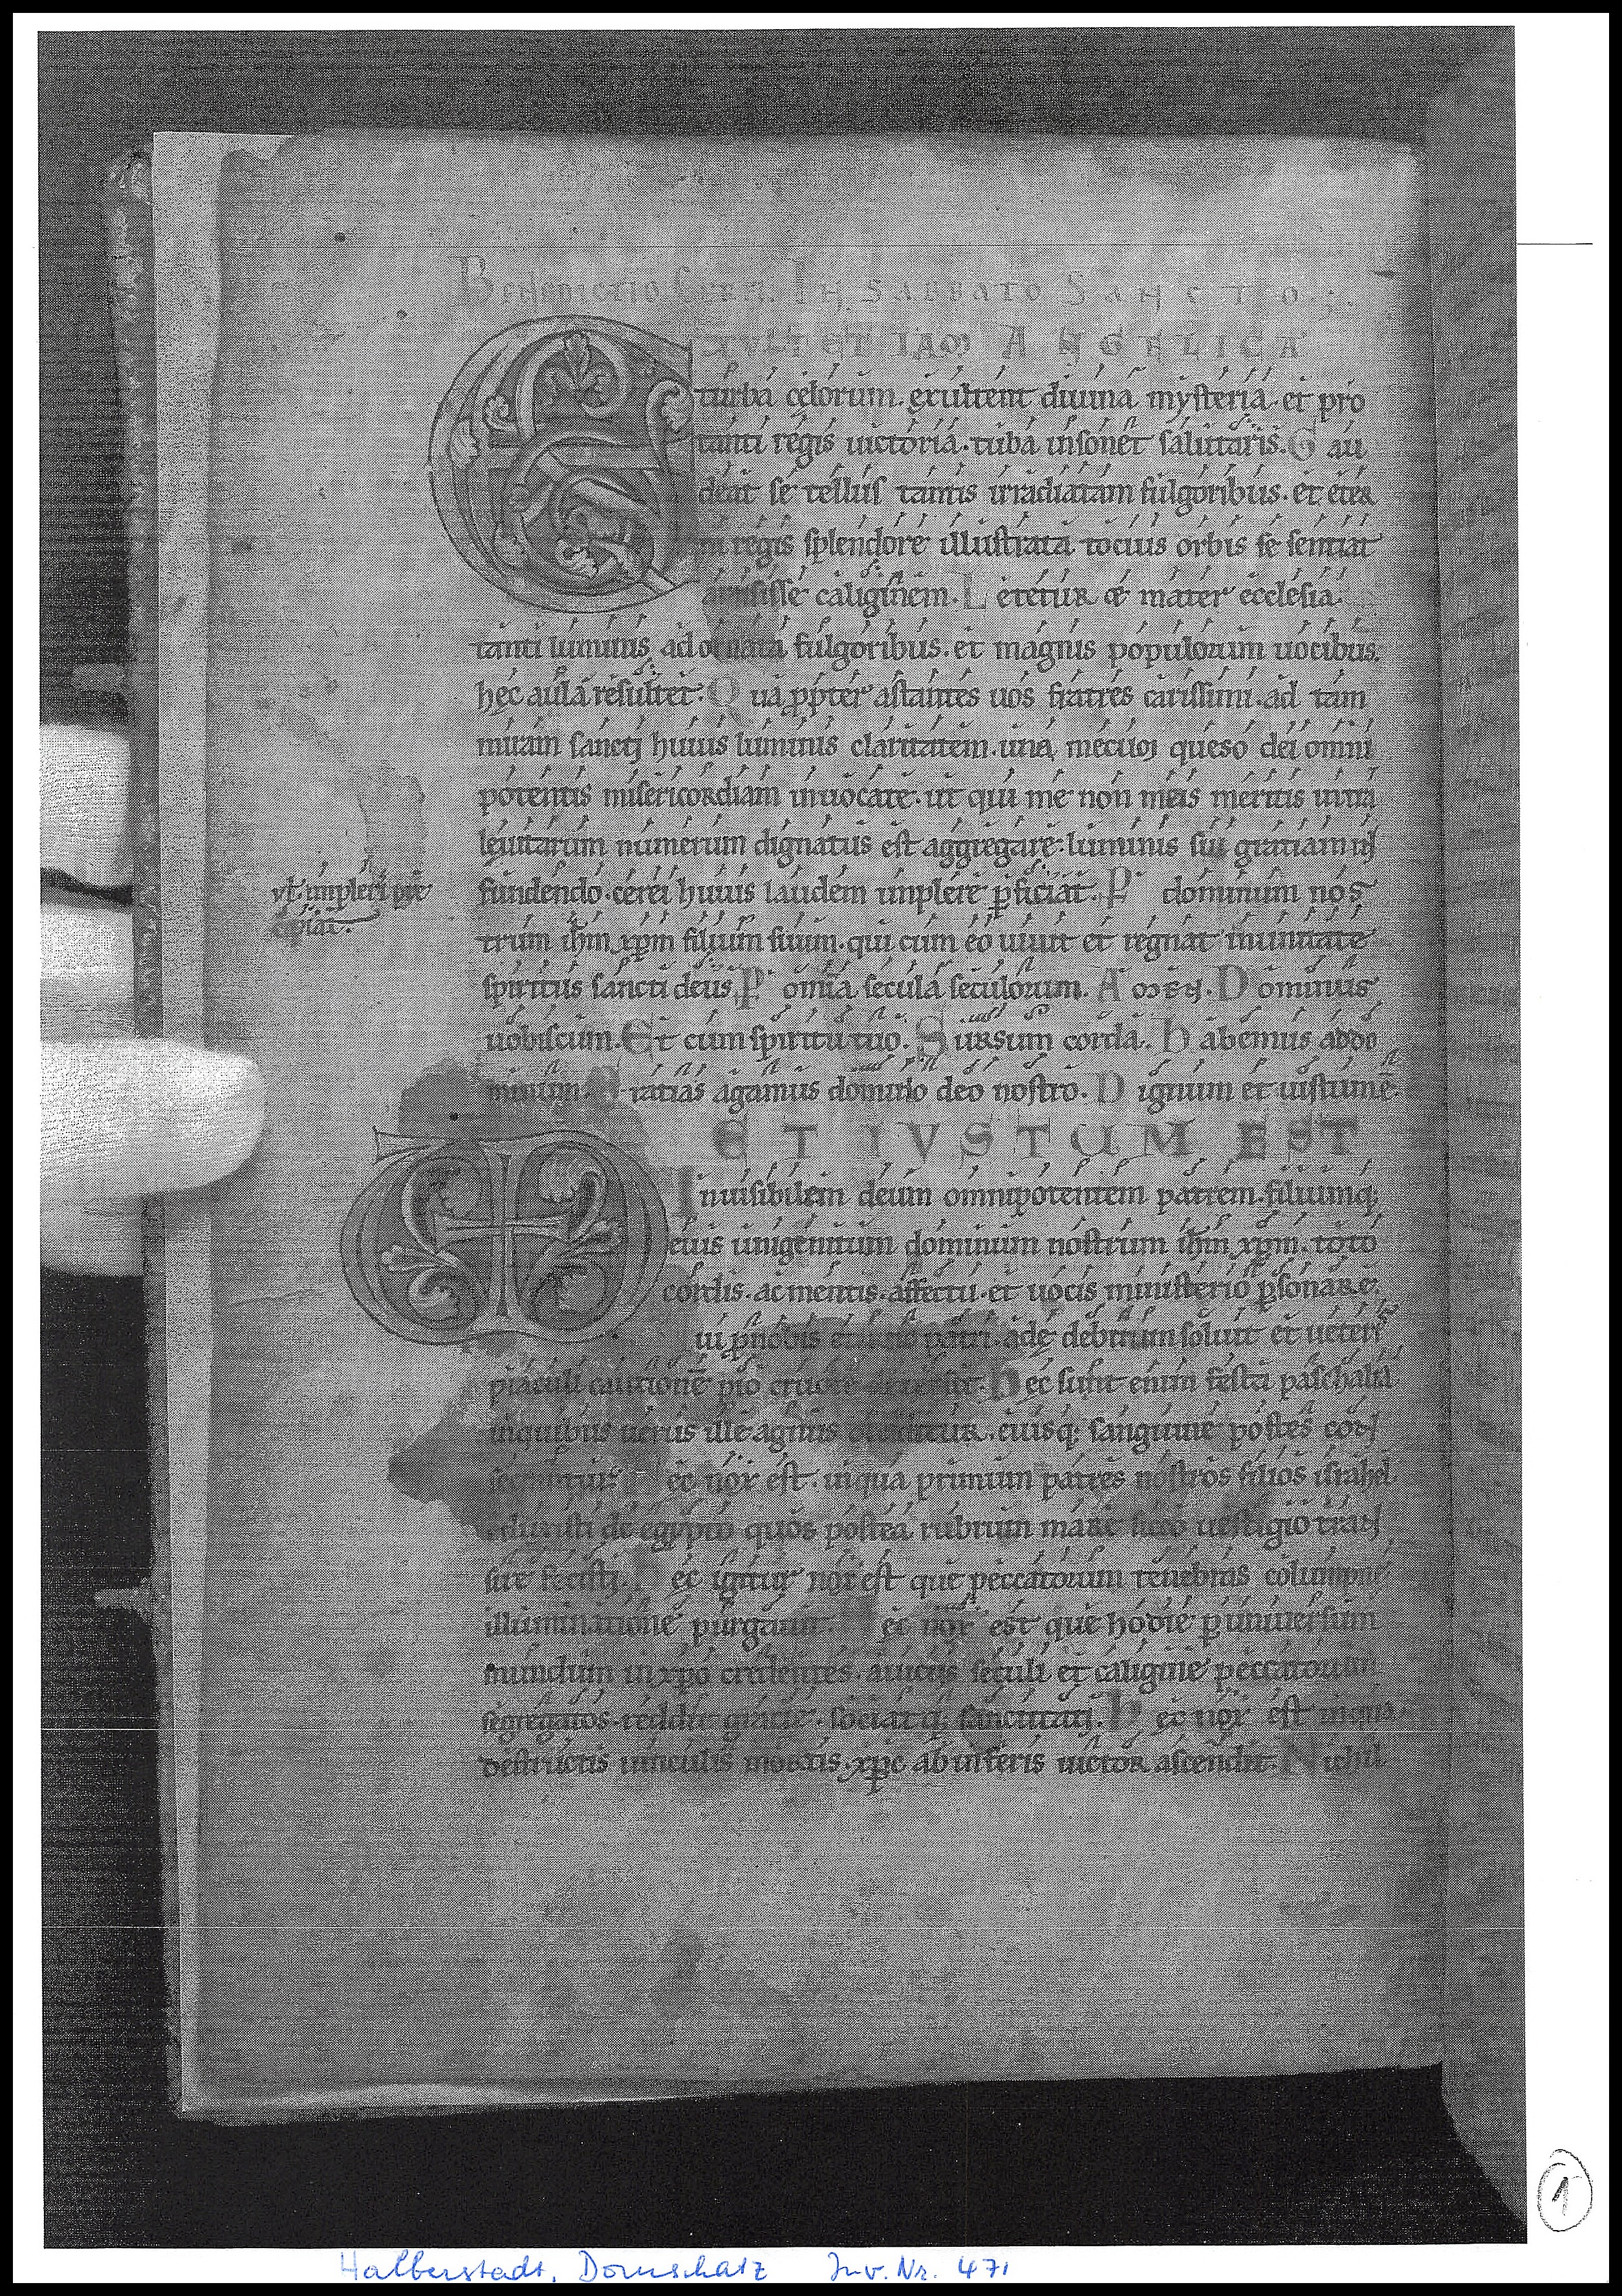 Benedictio Cerei. In Sabbato Sancto.
EXULTET IAM ANGELICA
turba cęlorum. exultent diuina mysteria. et pro
tanti regis uictoria. tuba insonet salutaris. Gau
deat se tellus tantis irradiatam fulgoribus. et eter
ni regis splendore illustrata. tocius orbis se sentiat
amisisse caliginem. Letetur & mater ecclesia.
tanti luminis adornata fulgoribus. et magnis populorum uocibus.
hęc aula resultet. Qua ꝓpter astantes uos fratres carissimi. ad tam
miram sancti huius luminis claritatem. una mecum queso dei omni
potentis misericordiam inuocate. ut qui me non meis meritis intra
leuitarum numerum dignatus est aggregare. luminis sui gratiam in
fundendo. cerei huius laudem implere ꝑficiat. P dominum nos
vl impleri pre
cipiat.
trum ihm xpm filium suum. qui cum eo uiuit et regnat in unitate
spiritus sancti deus. P omnia secula seculorum. Amen. Dominus
uobiscum. Et cum spiritu tuo. Sursum corda. Habemus addo
minum. Gratias agamus domino deo nostro. Dignum et iustum ē.
ET IVSTUM EST
Inuisibilem deum omnipotentem patrem. filiumq;
eius unigenitum dominum nostrum ihm xpm. toto
cordis. ac mentis. affectu. et uocis ministerio ꝑsonare.
ui ꝓ nobis eterno patri. adę debitum soluit et ueteris
piaculi cautionē pio cruore detersit. Hec sunt enim festa paschalia
in quibus uerus ille agnus occiditur. eiusq; sanguine postes con
secrantur. Hec nox est. in qua primum patres nostros filios israhel
eduxisti de egypto quos postea rubrum mare sicco uestigio tran
sire fecisti. Hec igitur nox est que peccatorum tenebras columpne
illuminatione purgauit. Hec nox est que hodie ꝑ uniuersum
mundum in xpo credentes. a uiciis seculi et caligine peccatorum
segregatos. reddit gratie. sociatq; sanctitati. Hec nox est in qua
destructis uinculis mortis. xpc ab inferis uictor ascendit. Nichil
1
Halberstadt, Domschatz Inv. Nr. 471